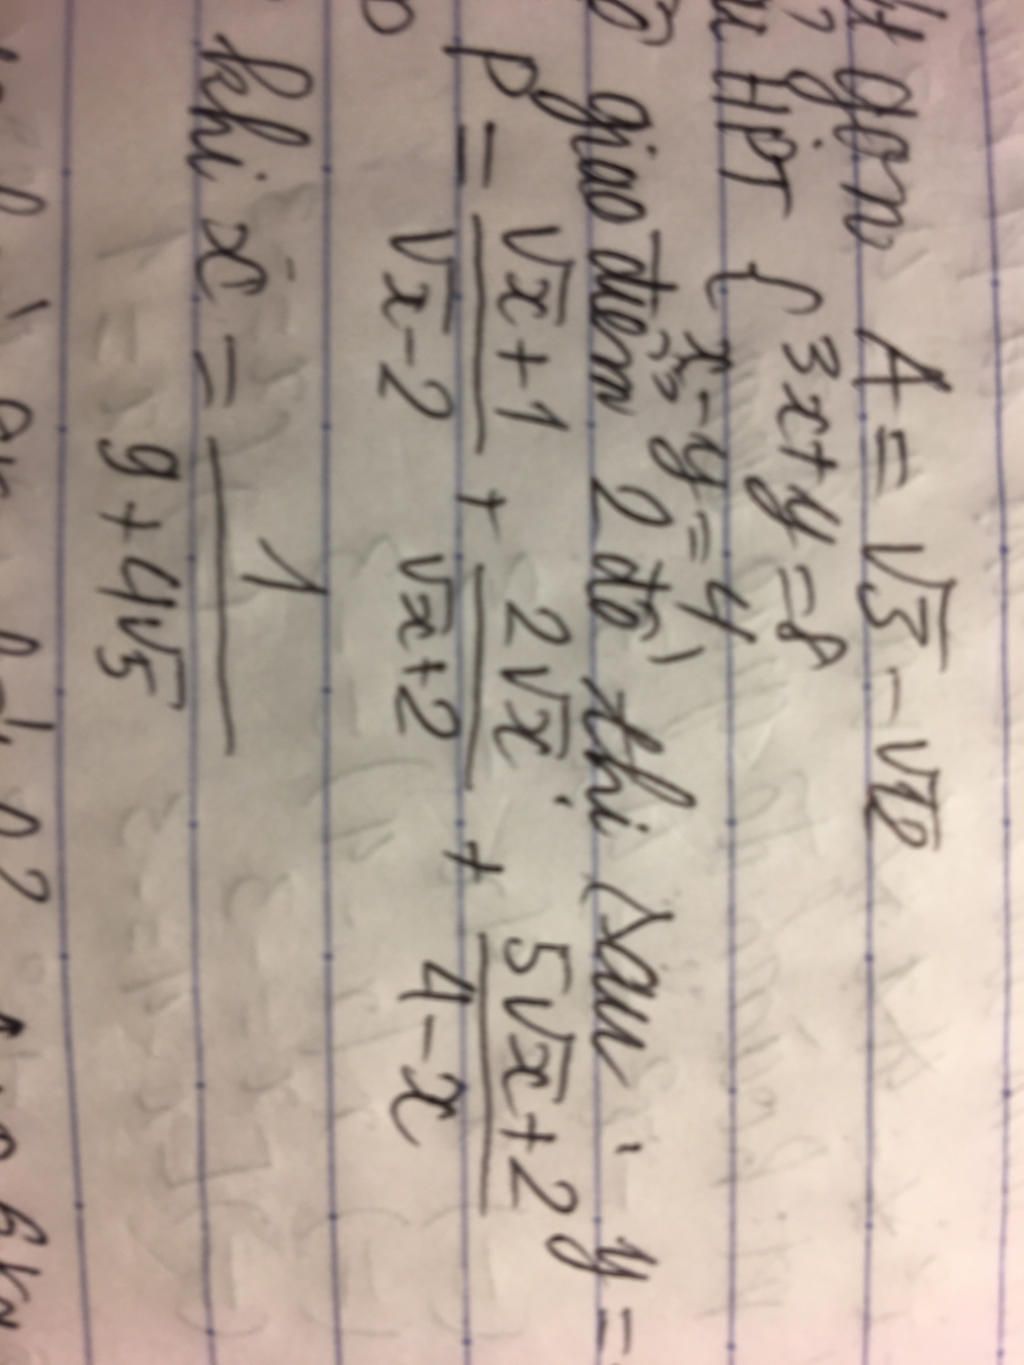 gọn A = √3 - √12
HPT { 3x + y = 8
x - y = 4
giao điểm 2 đồ thị sau : y =
P = (√x + 1)/(√x - 2) + (2√x)/(√x + 2) + (5√x + 2)/(4 - x)
khi x = 1/(9 + 4√5)